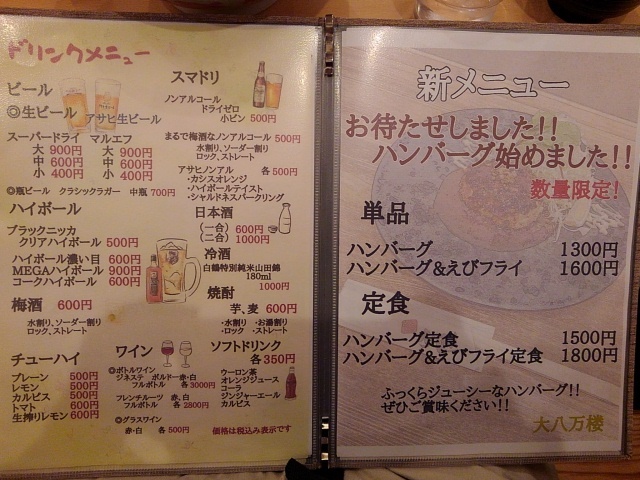 ドリンクメニュー
ビール
◎生ビール
アサヒ生ビール
スーパードライ マルエフ
大 900円 大 900円
中 600円 中 600円
小 400円 小 400円
◎瓶ビール クラシックラガー 中瓶 700円
ハイボール
ブラックニッカ
クリアハイボール 500円
ハイボール濃い目 600円
MEGAハイボール 900円
コークハイボール 600円
梅酒 600円
水割り、ソーダー割り
ロック、ストレート
チューハイ
プレーン 500円
レモン 500円
カルピス 500円
トマト 600円
生搾りレモン 600円
スマドリ
ノンアルコール
ドライゼロ
小ビン 500円
まるで梅酒なノンアルコール 500円
水割り、ソーダー割り
ロック、ストレート
アサヒノンアル 各 500円
・カシスオレンジ
・ハイボールテイスト
・シャルドネスパークリング
日本酒
(一合) 600円
(二合) 1000円
冷酒
白鶴特別純米山田錦
180ml
1000円
焼酎
芋、麦 600円
・水割り ・お湯割り
・ロック ・ストレート
ワイン
◎ボトルワイン
ジネステ ボルドー赤・白
フルボトル 各 3000円
フレンチルーツ 赤・白
フルボトル 各 2800円
◎グラスワイン
赤・白 各 500円
ソフトドリンク
各 350円
ウーロン茶
オレンジジュース
コーラ
ジンジャーエール
カルピス
価格は税込み表示です
新メニュー
お待たせしました!!
ハンバーグ始めました!!
数量限定!
単品
ハンバーグ 1300円
ハンバーグ&えびフライ 1600円
定食
ハンバーグ定食 1500円
ハンバーグ&えびフライ定食 1800円
ふっくらジューシーなハンバーグ!!
ぜひご賞味ください!!
大八万楼